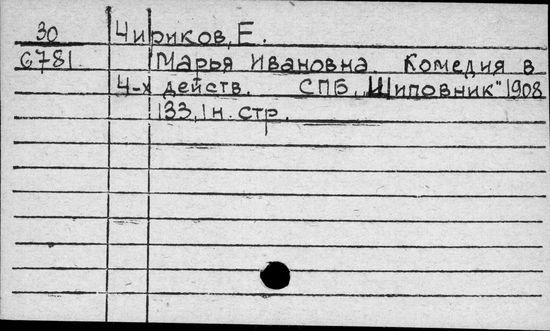 30 Чириков, Е.
6781 Марья Ивановна Комедия в
4-х действ. СПБ, „Шиповник" 1908
133, 1 н. стр.